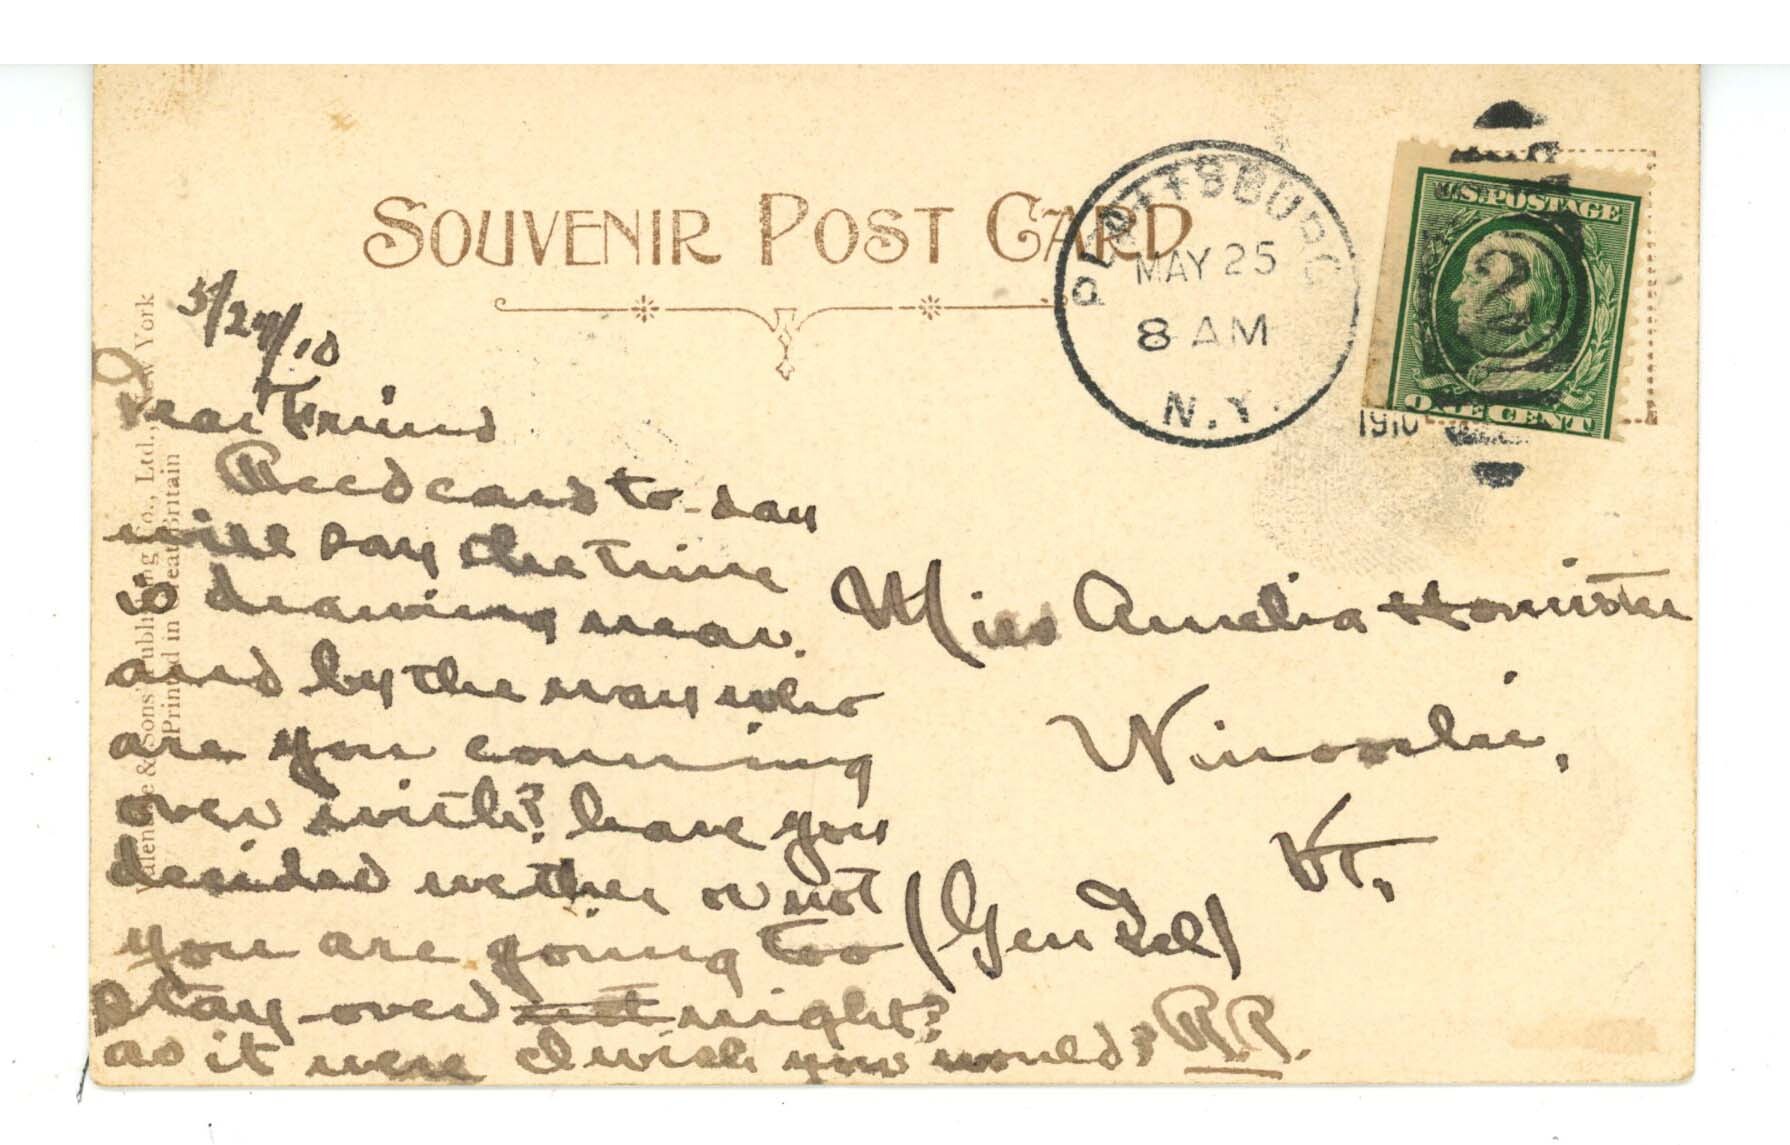 SOUVENIR POST CARD
PLATTSBURG
MAY 25
8 AM
N.Y.
1910
U.S. POSTAGE
2
ONE CENT
5/24/10
Dear Friend
Recd card to-day
will say the time
is drawing near.
and by the way who
are you comming
over with? have you
decided wether or not
you are going too
stay over night?
as it were I wish you would? R.R.
Miss Amelia
Winooskie,
Vt.
(Gen Del)
Valentine & Sons' Publishing Co., Ltd., New York
Printed in Great Britain